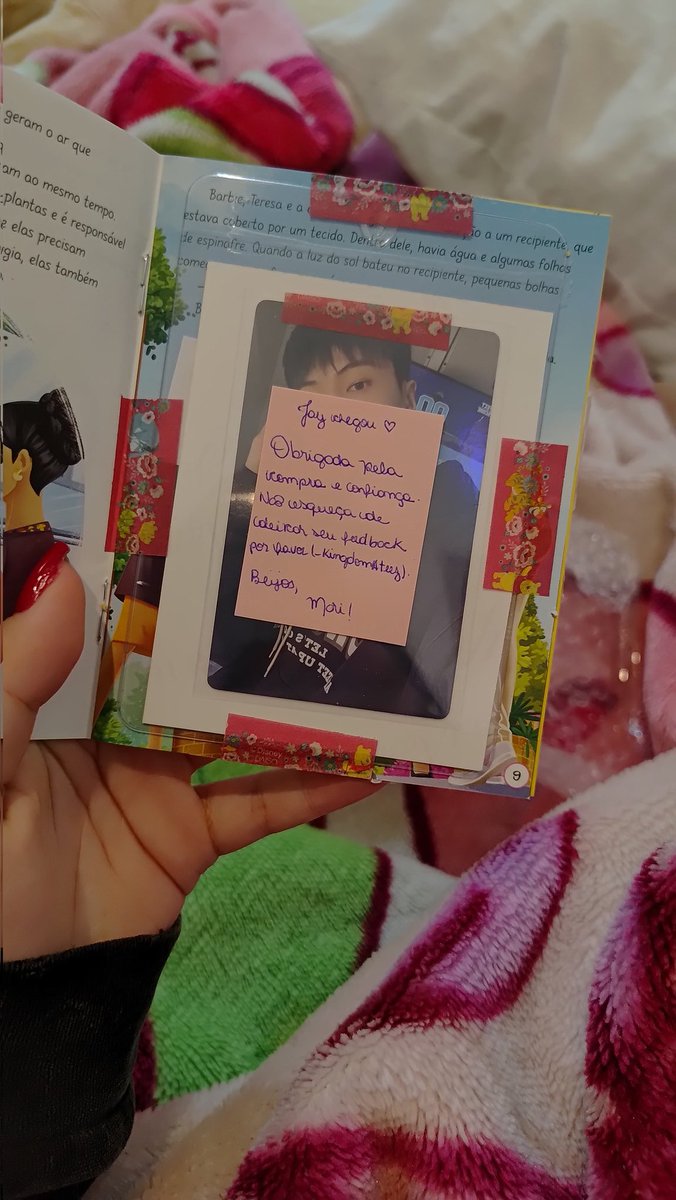 geram o ar que
am ao mesmo tempo.
plantas e é responsável
e elas precisam
rgia, elas também
Barbie, Teresa e a
o a um recipiente, que
estava coberto por um tecido. Dentro dele, havia água e algumas folhas
de espinafre. Quando a luz do sol bateu no recipiente, pequenas bolhas
come
Jay chegou ♡
Obrigada pela
compra e confiança.
Não esqueça de
deixar seu fedback
por favor (-KingdomAteez).
Beijos,
Mori!
LET'S
9